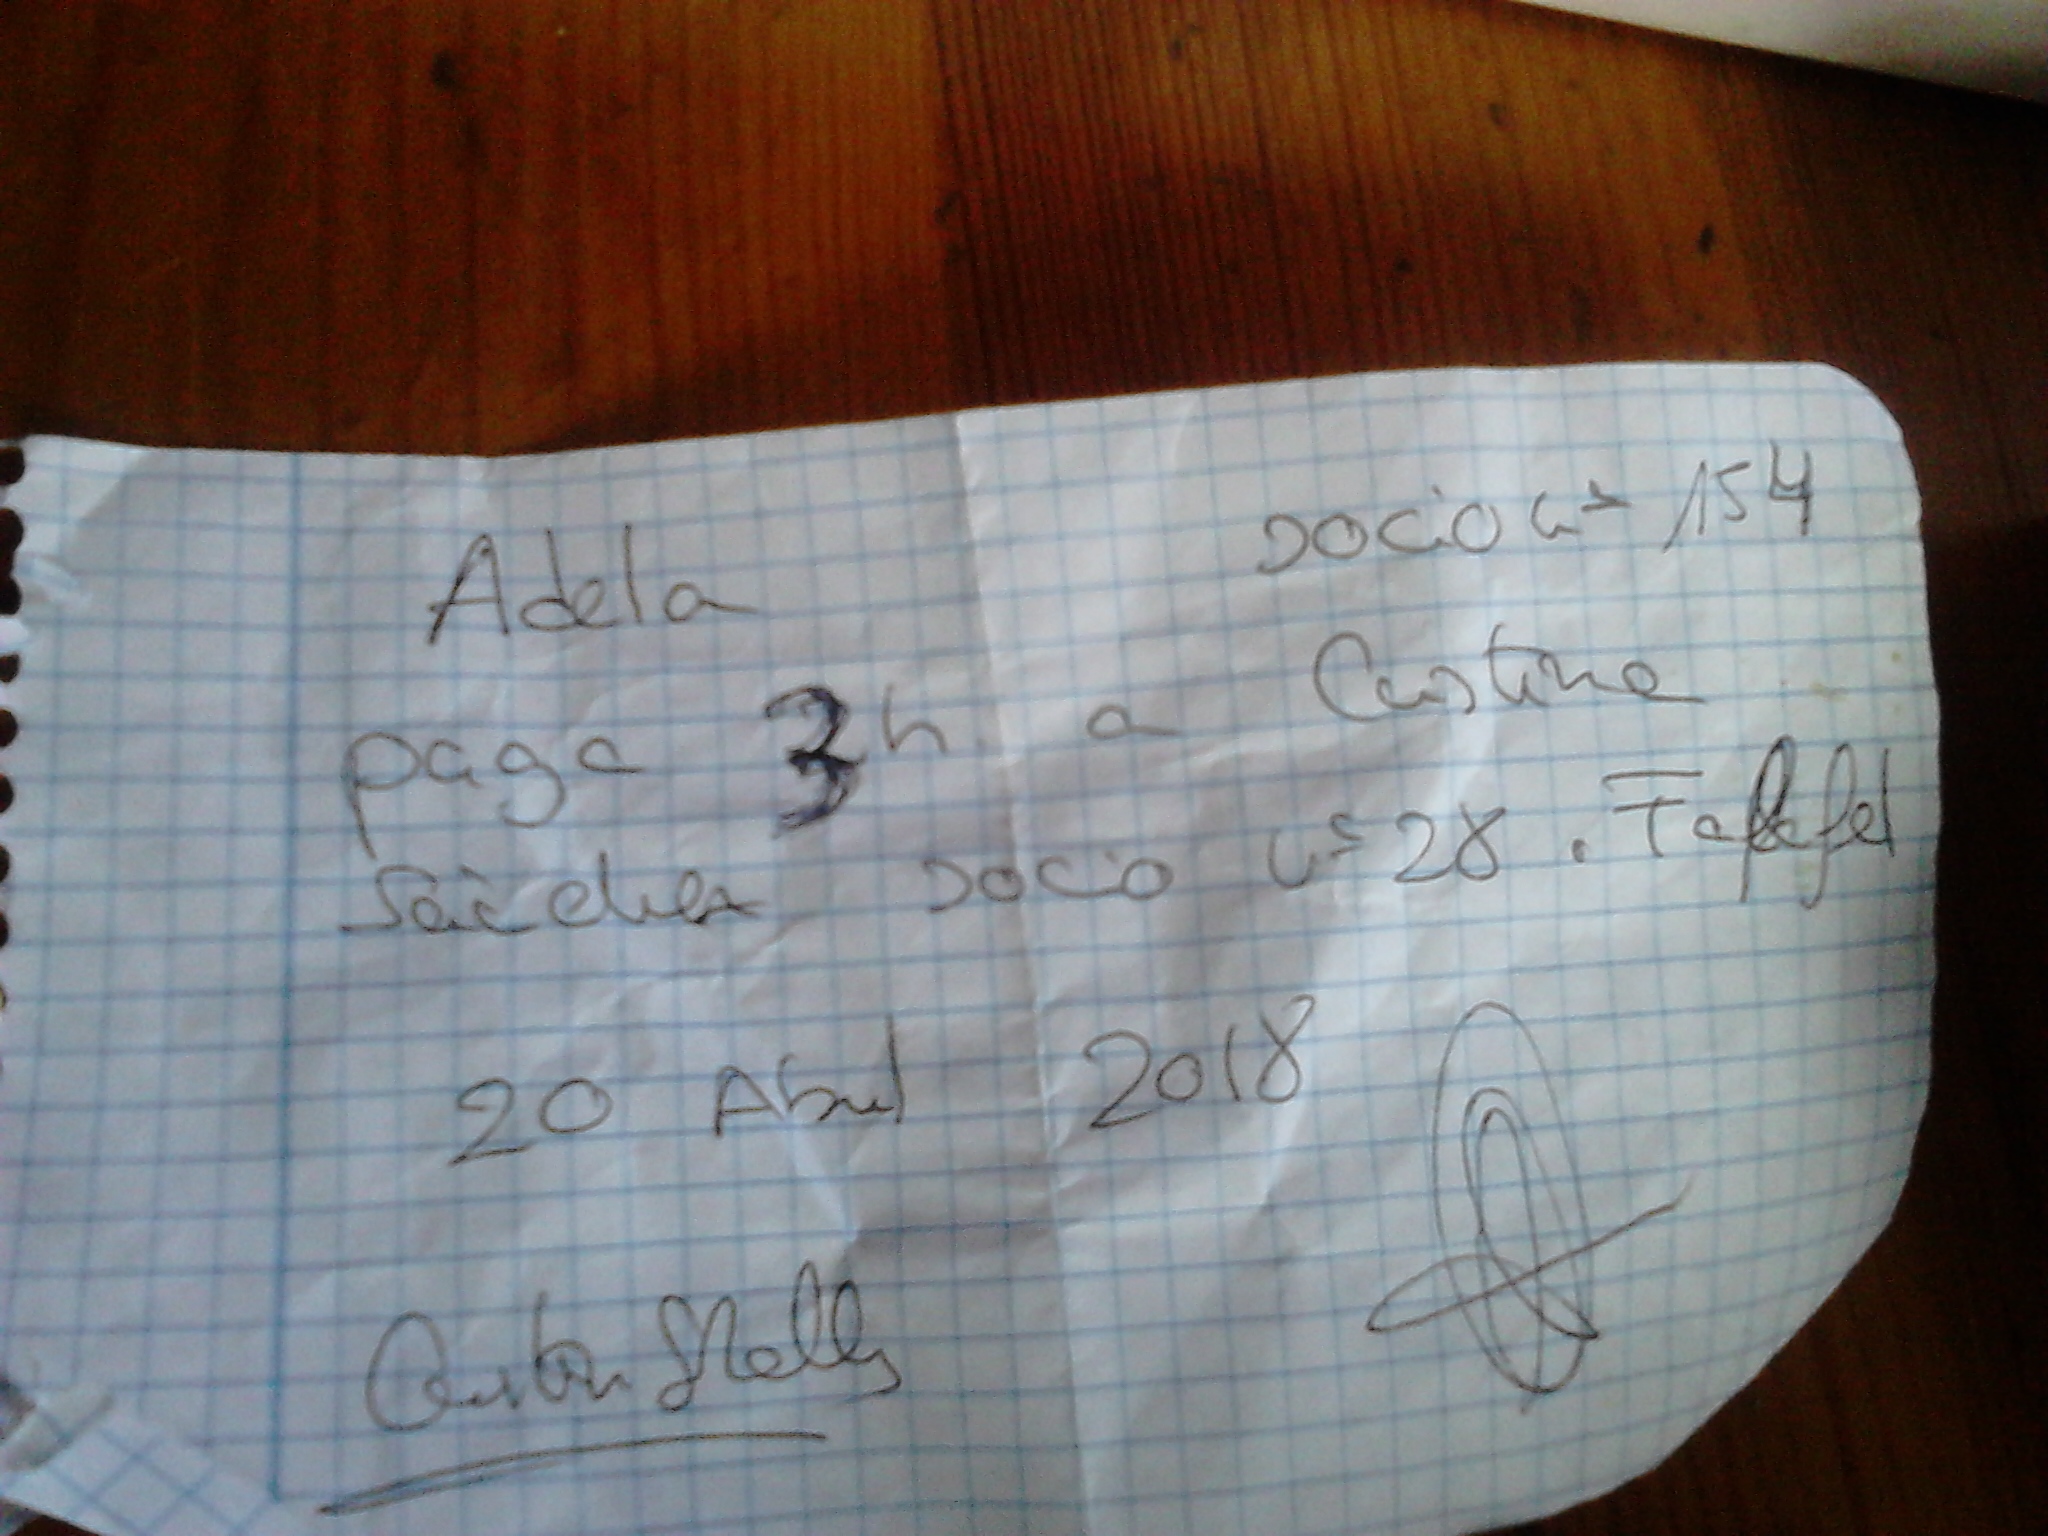 Adela socio nº 154
paga 3h a Cristina
Sánchez socio nº 28. Falafel
20 Abril 2018